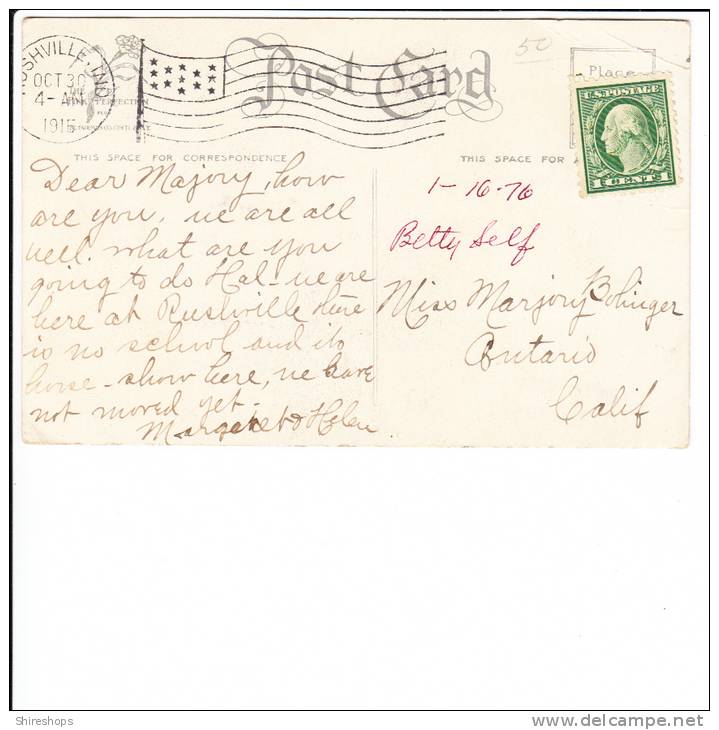 RUSHVILLE, IND
OCT 30
4- AM
1915
Post Card
50
Place
U.S. POSTAGE
1 CENT 1
THIS SPACE FOR CORRESPONDENCE
THIS SPACE FOR A
Dear Majory, how
are you. we are all
well. what are you
going to do Hal- we are
here at Rushville there
is no school and its
horse-show here, we have
not moved yet.
Margaret & Helen
1-16-76
Betty Self
Miss Marjory Bolinger
Ontario
Calif
Shireshops
www.delcampe.net